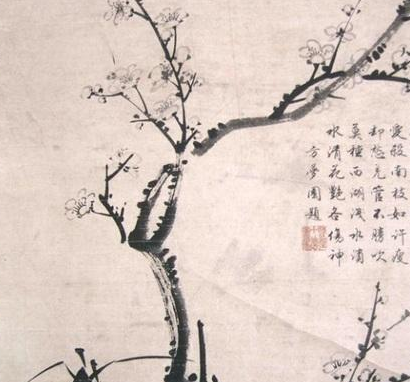 愛殺南枝如許瘦
却愁羌管不勝吹
莫種西湖淺水濱
水清花艷各傷神
方夢園題